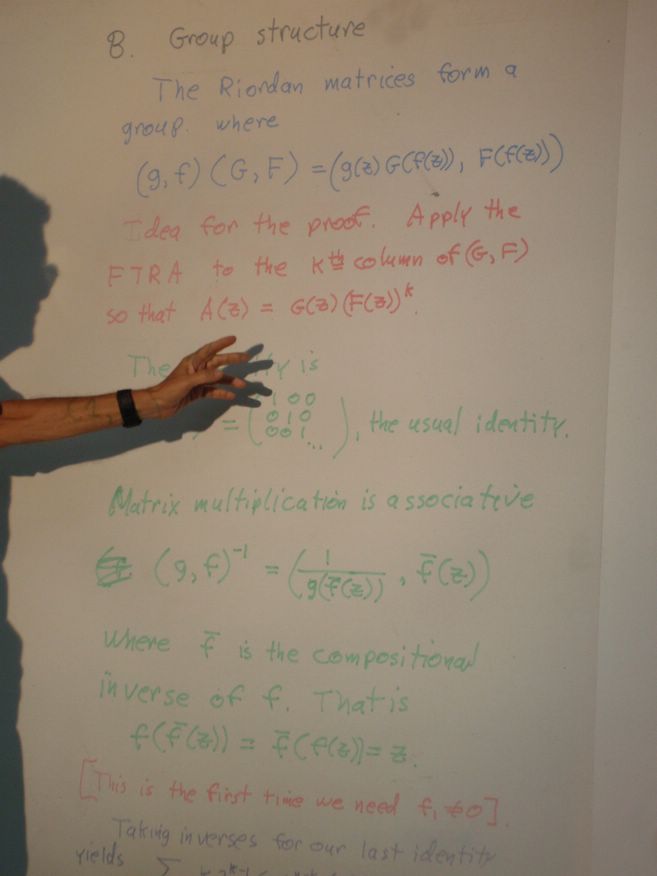 B. Group structure
The Riordan matrices form a
group. where
(g, f) (G, F) = (g(z) G(f(z)), F(f(z)))
Idea for the proof. Apply the
FTRA to the kth column of (G, F)
so that A(z) = G(z) (F(z))^k.
The is
= ( 1 0 0
0 1 0
0 0 1 ... ), the usual identity.
Matrix multiplication is associative
(g, f)^-1 = ( 1 / g(f̄(z)) , f̄(z))
where f̄ is the compositional
inverse of f. That is
f(f̄(z)) = f̄(f(z)) = z.
[This is the first time we need f₁ ≠ 0].
Taking inverses for our last identity
yields Σ